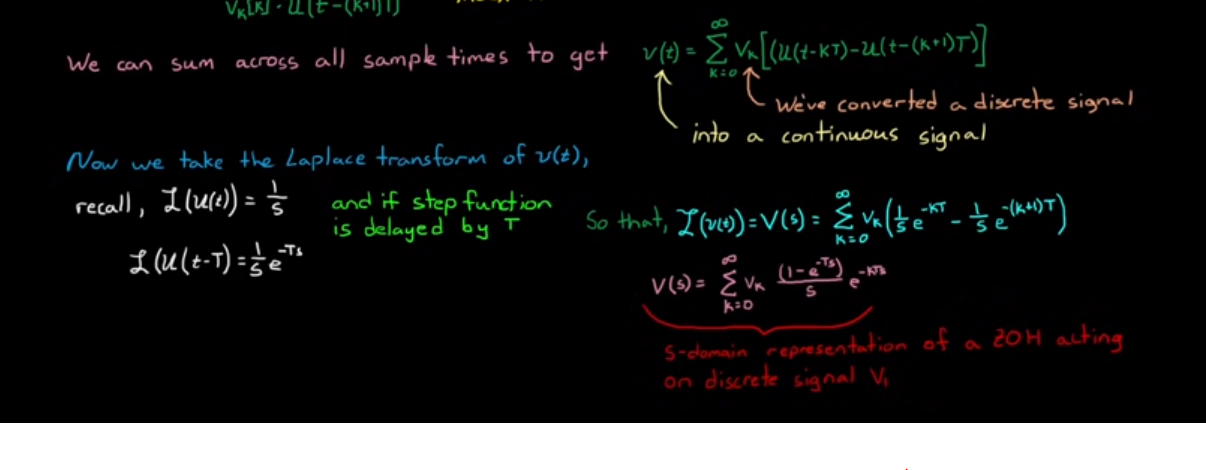 V_K[K] · U(t-(K+1)T)
We can sum across all sample times to get v(t) = ∞ Σ K=0 V_K[(U(t-KT)-U(t-(K+1)T)]
We've converted a discrete signal
into a continuous signal
Now we take the Laplace transform of v(t),
recall, ℒ(U(t)) = 1/s and if step function
is delayed by T
ℒ(U(t-T) = 1/s e^-Ts
So that, ℒ(v(t)) = V(s) = ∞ Σ K=0 V_K(1/s e^-KT - 1/s e^-(K+1)T)
V(s) = ∞ Σ K=0 V_K (1-e^-Ts)/s e^-KTs
S-domain representation of a ZOH acting
on discrete signal V,